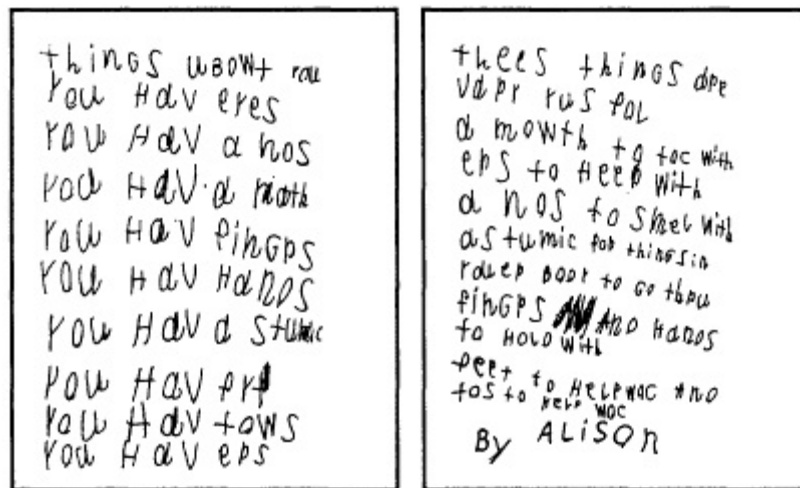 things uBOWt you
You HaV eyes
YOU HaV a nos
you HAV a mowth
YOU HaV finGrs
YOU HAV HaNDS
YOU HaV a stumic
YOU HaV
YOU HaV tows
YOU HaV ers
thees things are
varr yus fol
a mowth to toc with
ers to Heer with
a nos to smel with
a stumic for things in
youer BODY to GO thru
finGrs AND HaNDS
to HOLD with
feet to HELP WOC AND
tos to HELP WOC
By ALiSON